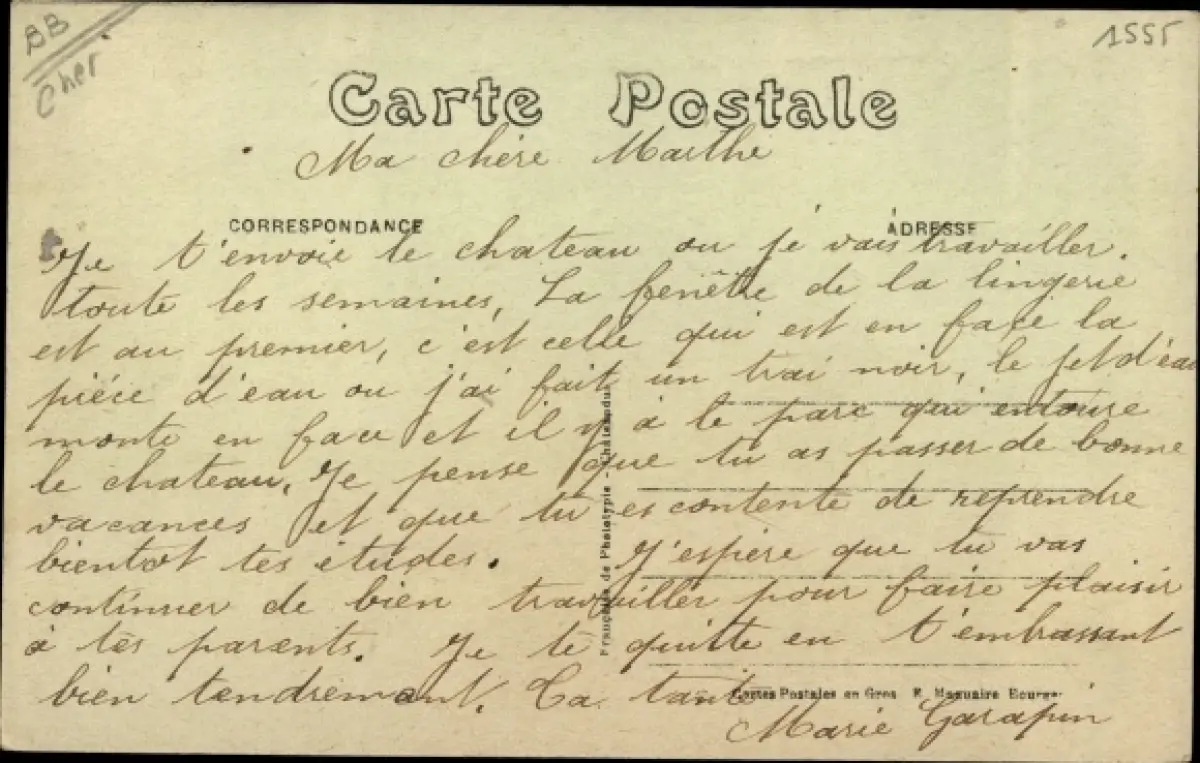 BB
Cher
1555
Carte Postale
Ma chère Marthe
CORRESPONDANCE
ADRESSE
Je t'envoie le chateau ou je vais travailler.
toute les semaines, La fenêtre de la lingerie
est au premier, c'est celle qui est en face la
pièce d'eau ou j'ai fait un trai noir, le jet d'eau
monte en face et il y à le parc qui entoure
le chateau, Je pense que tu as passer de bonne
vacances et que tu es contente de reprendre
bientot tes études. J'espère que tu vas
continuer de bien travailler pour faire plaisir
à tes parents. Je te quitte en t'embrassant
bien tendrement. Ta tante
Marie Garapin
Française de Phototypie - Châteaudun
Cartes Postales en Gros